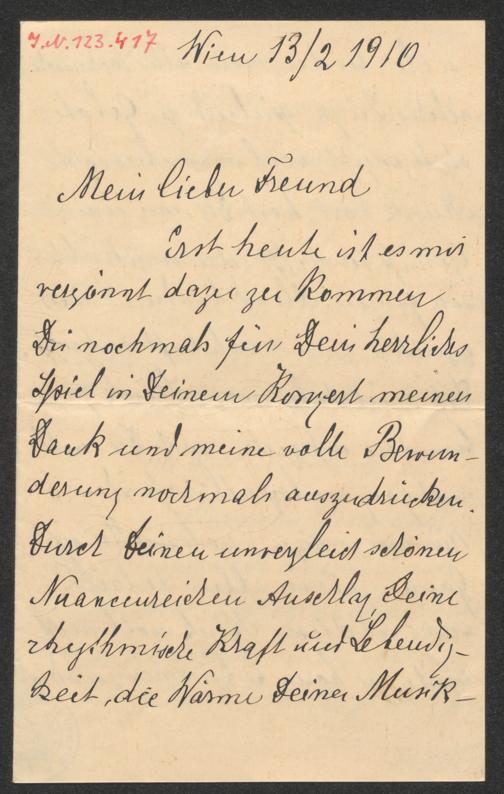 I.N. 123.417
Wien 13/2 1910
Mein lieber Freund
Erst heute ist es mir
vergönnt dazu zu kommen
Dir nochmals für Dein herrliches
Spiel in Deinem Konzert meinen
Dank und meine volle Bewun-
derung nochmals auszudrücken.
Durch Deinen unvergleich schönen
Nuancenreichen Anschlag, Deine
rhythmische Kraft und Lebendig-
keit, die Wärme Deiner Musik-